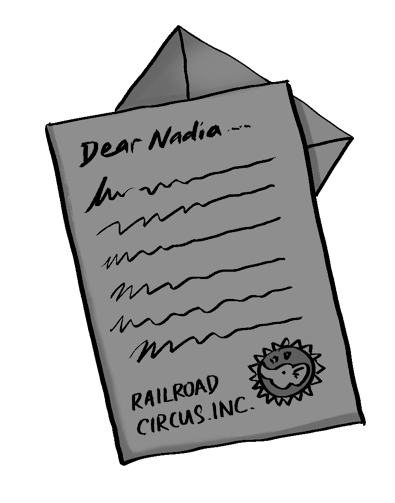 Dear Nadia...
RAILROAD
CIRCUS.INC.